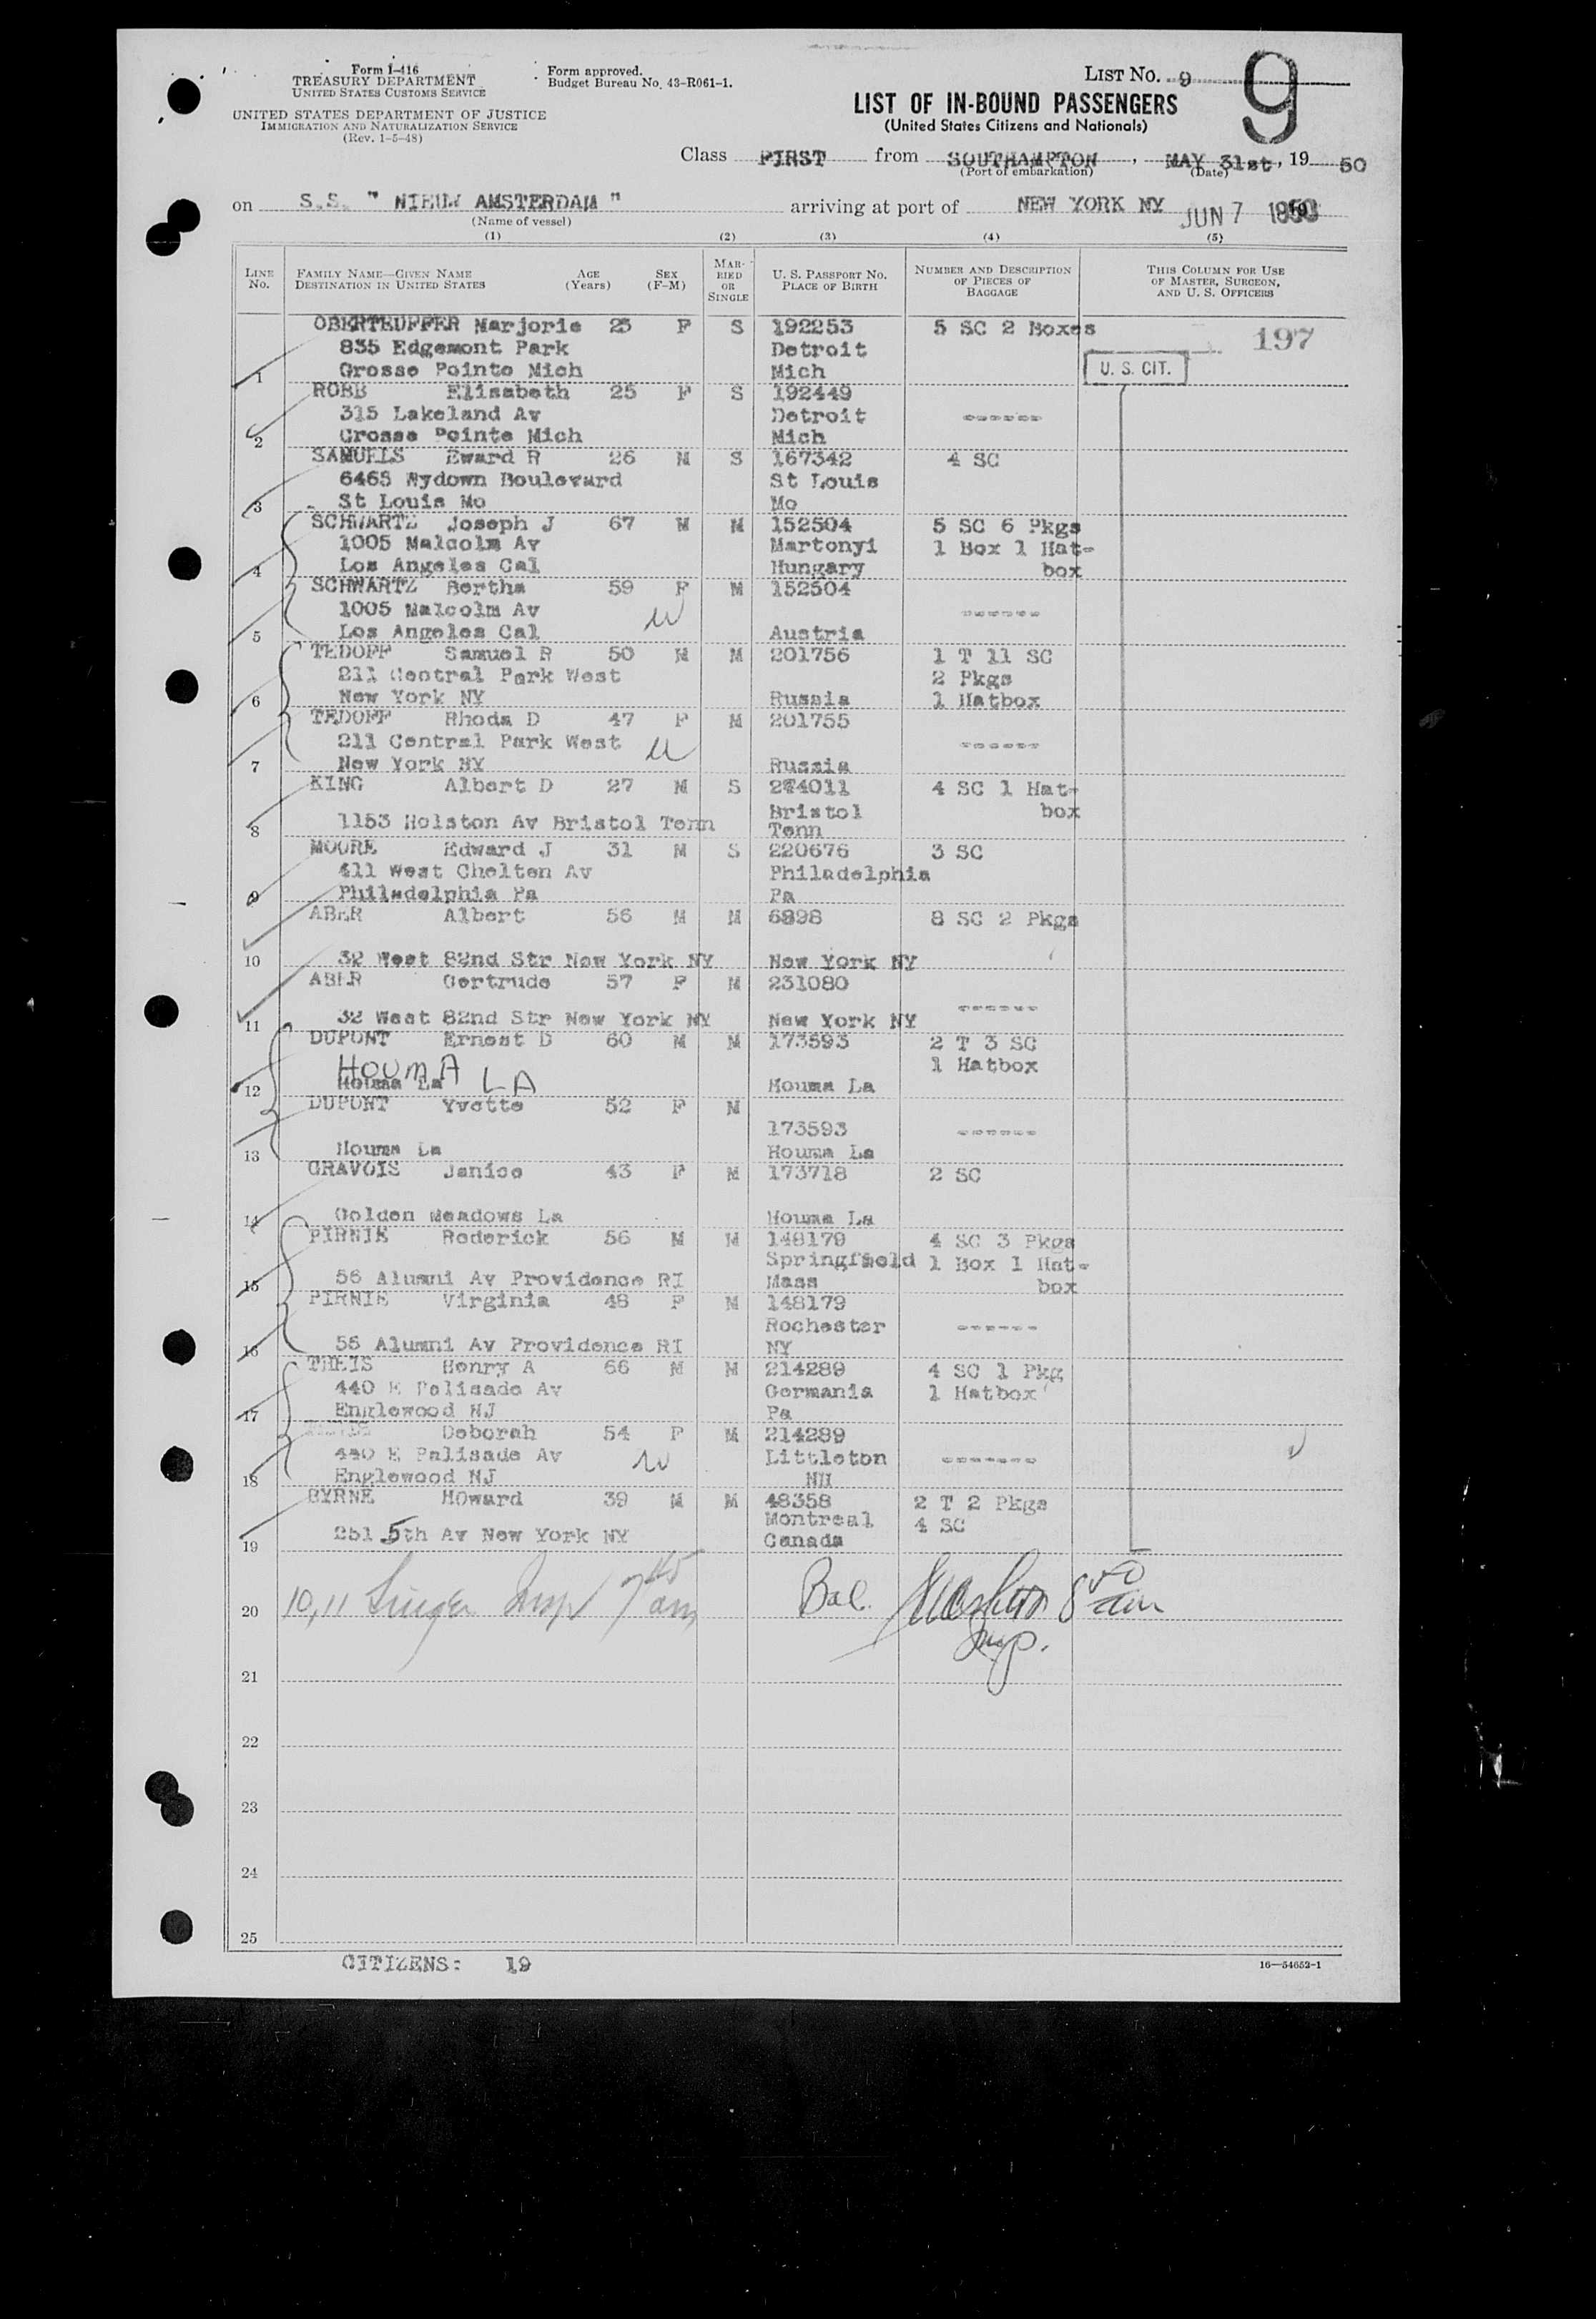 Form I-416
TREASURY DEPARTMENT
UNITED STATES CUSTOMS SERVICE
UNITED STATES DEPARTMENT OF JUSTICE
IMMIGRATION AND NATURALIZATION SERVICE
(Rev. 1-5-48)
Form approved.
Budget Bureau No. 43-R061-1.
LIST No. 9
9
LIST OF IN-BOUND PASSENGERS
(United States Citizens and Nationals)
Class FIRST from SOUTHAMPTON, MAY 31st, 19 50
(Port of embarkation) (Date)
on S.S. " NIEUW AMSTERDAM " arriving at port of NEW YORK NY JUN 7 1950
(Name of vessel)
(1) (2) (3) (4) (5)
LINE No. FAMILY NAME—GIVEN NAME DESTINATION IN UNITED STATES AGE (Years) SEX (F-M) MARRIED OR SINGLE U. S. PASSPORT No. PLACE OF BIRTH NUMBER AND DESCRIPTION OF PIECES OF BAGGAGE THIS COLUMN FOR USE OF MASTER, SURGEON, AND U. S. OFFICERS
OBERTEUFFER Marjorie 25 F S 192253 5 SC 2 Boxes 197
835 Edgemont Park Detroit
1 Grosse Pointe Mich Mich U. S. CIT.
ROBB Elisabeth 25 F S 192449
315 Lakeland Av Detroit ------
2 Grosse Pointe Mich Mich
SAMUELS Eward R 26 M S 167342 4 SC
6465 Wydown Boulevard St Louis
3 St Louis Mo Mo
SCHWARTZ Joseph J 67 M M 152504 5 SC 6 Pkgs
1005 Malcolm Av Martonyi 1 Box 1 Hat-
4 Los Angeles Cal Hungary box
SCHWARTZ Bertha 59 F M 152504
1005 Malcolm Av ------
5 Los Angeles Cal Austria
TEDOFF Samuel R 50 M M 201756 1 T 11 SC
211 Central Park West 2 Pkgs
6 New York NY Russia 1 Hatbox
TEDOFF Rhoda D 47 F M 201755
211 Central Park West ------
7 New York NY Russia
KING Albert D 27 M S 274011 4 SC 1 Hat-
Bristol box
8 1153 Holston Av Bristol Tenn Tenn
MOORE Edward J 31 M S 220676 3 SC
411 West Chelten Av Philadelphia
9 Philadelphia Pa Pa
ABER Albert 56 M M 6898 8 SC 2 Pkgs
10 32 West 82nd Str New York NY New York NY
ABER Gertrude 57 F M 231080
------
11 32 West 82nd Str New York NY New York NY
DUPONT Ernest D 60 M M 173593 2 T 3 SC
HOUMA LA 1 Hatbox
12 Houma La Houma La
DUPONT Yvette 52 F M
173593 ------
13 Houma La Houma La
GRAVOIS Janice 43 F M 173718 2 SC
14 Golden Meadows La Houma La
PIRNIE Roderick 56 M M 148179 4 SC 3 Pkgs
Springfield 1 Box 1 Hat-
15 56 Alumni Av Providence RI Mass box
PIRNIE Virginia 48 F M 148179
Rochester ------
16 56 Alumni Av Providence RI NY
THEIS Henry A 66 M M 214289 4 SC 1 Pkg
440 E Palisade Av Germania 1 Hatbox
17 Englewood NJ Pa
Deborah 54 F M 214289
440 E Palisade Av Littleton -------
18 Englewood NJ NH
BYRNE HOward 39 M M 48358 2 T 2 Pkgs
Montreal 4 SC
19 251 5th Av New York NY Canada
20 10,11 Singer Insp 7 45 am Bal. 8 50 am
Insp.
21
22
23
24
25
CITIZENS: 19
16—54652-1